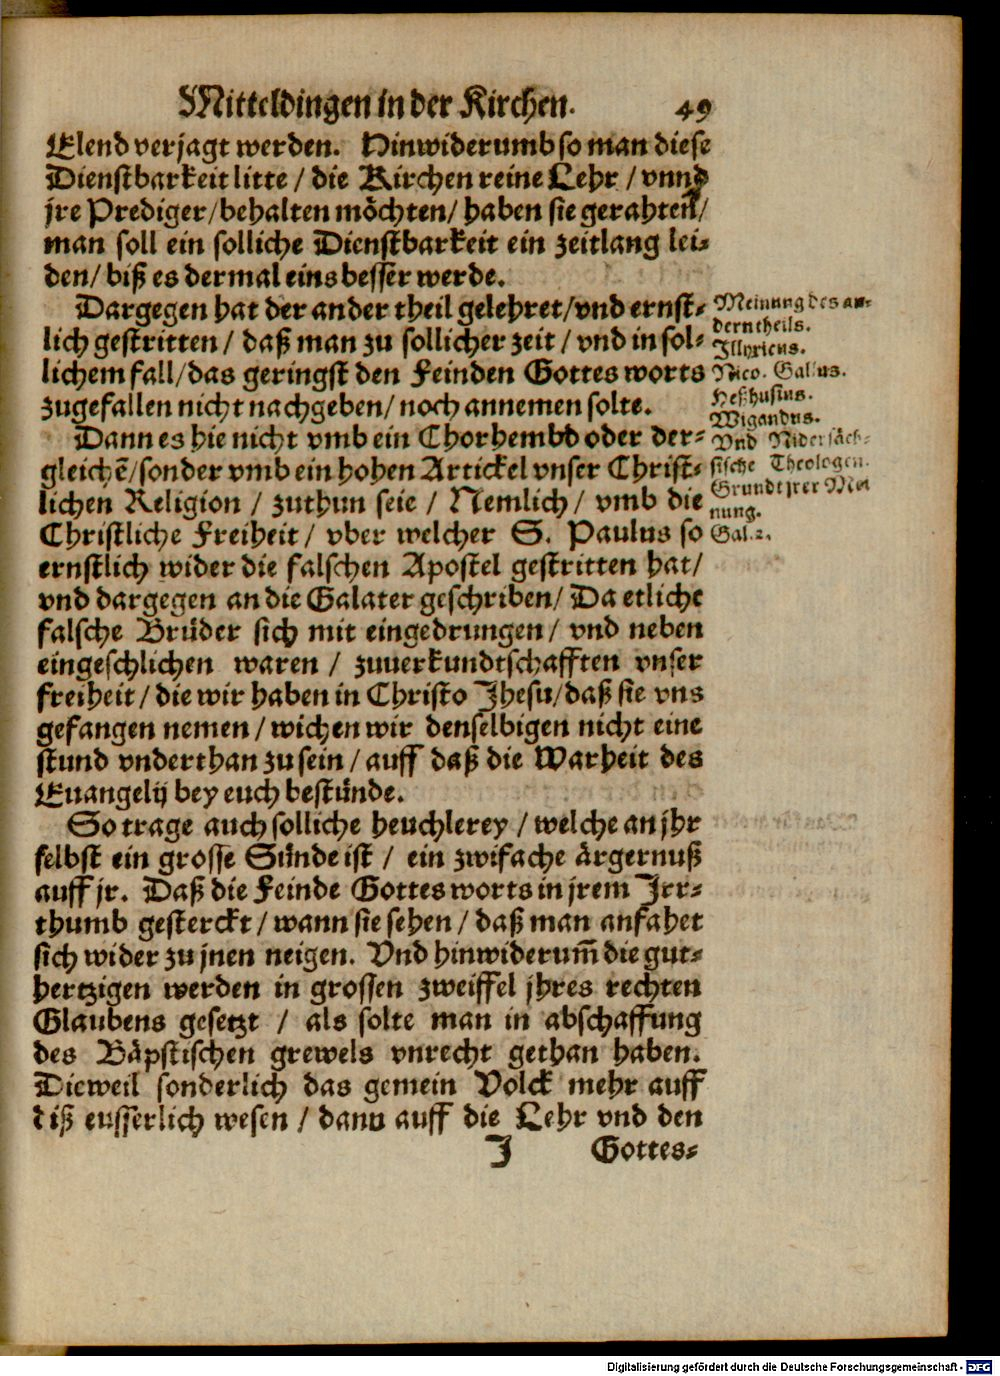 Mitteldingen in der Kirchen. 49
Elend verjagt werden. Hinwiderumb so man diese
Dienstbarkeit litte / die Kirchen reine Lehr / vnnd
jre Prediger / behalten möchten / haben sie gerahten /
man soll ein solliche Dienstbarkeit ein zeitlang lei⸗
den / biß es dermal eins besser werde.
Dargegen hat der ander theil gelehret / vnd ernst⸗
lich gestritten / daß man zu sollicher zeit / vnd in sol⸗
lichem fall / das geringst den Feinden Gottes worts
zugefallen nicht nachgeben / noch annemen solte.
Dann es hie nicht vmb ein Chorhembd oder der⸗
gleichē / sonder vmb ein hohen Artickel vnser Christ⸗
lichen Religion / zuthun seie / Nemlich / vmb die
Christliche Freiheit / vber welcher S. Paulus so
ernstlich wider die falschen Apostel gestritten hat /
vnd dargegen an die Galater geschriben / Da etliche
falsche Brüder sich mit eingedrungen / vnd neben
eingeschlichen waren / zuuerkundtschafften vnser
freiheit / die wir haben in Christo Jhesu / daß sie vns
gefangen nemen / wichen wir denselbigen nicht eine
stund vnderthan zu sein / auff daß die Warheit des
Euangelij bey euch bestünde.
So trage auch solliche heuchlerey / welche an jhr
selbst ein grosse Sünde ist / ein zwifache ärgernuß
auff jr. Daß die Feinde Gottes worts in jrem Jrr⸗
thumb gesterckt / wann sie sehen / daß man anfahet
sich wider zu jnen neigen. Vnd hinwiderum̄ die gut⸗
hertzigen werden in grossen zweiffel jhres rechten
Glaubens gesetzt / als solte man in abschaffung
des Bäpstischen grewels vnrecht gethan haben.
Dieweil sonderlich das gemein Volck mehr auff
diß eusserlich wesen / dann auff die Lehr vnd den
J Gottes⸗
Meinung des an⸗
dern theils.
Illyricus.
Nico. Gallus.
Heßhusius.
Wigandus.
Vnd Nidersäch⸗
sische Theologen.
Grundt jrer Mei
nung.
Gal. 2.
Digitalisierung gefördert durch die Deutsche Forschungsgemeinschaft - DFG